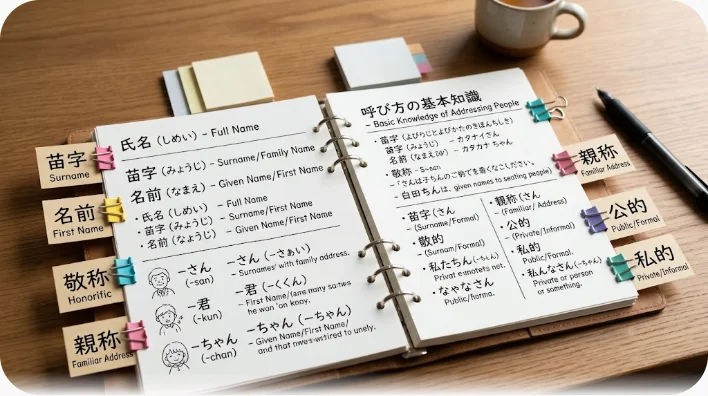 苗字
Surname
名前
First Name
敬称
Honorific
親称
Familiar Address
氏名（しめい）- Full Name
苗字（みょうじ）- Surname/Family Name
名前（なまえ）- Given Name/First Name
・氏名（しめい） - Full Name
・苗字（みょうじ） - Surname/First Name
・名前（なょうじ） - Given Name/First Name
-さん
(-san)
-さん（-さぁい）
- Surnames' with family address.
-君
(-kun)
-君（-くくん）
- First Name/
-ちゃん
(-chan)
-ちゃん（-ちゃん）
- Given Name/First Name/
and that
呼び方の基本知識
- Basic Knowledge of Addressing People
・苗字
苗字（みょうじ） - カタナイさん
名前（なまえ） - カタカナ ちゃん
・敬称 -
given names to seating people)
・苗字（さん
- (Surname/Formal)
・敬的
- (Surnam/Formal)
・私たちん（-ちゃん）
・なゃなさん
Public/forma.
・親称（さん
- (Familiar / Address)
・公的
- (Private/Informal)
・私的
Public/Formal.
・私んなさん（-ちゃん）
Private or person
or something.
親称
Familiar Address
公的
Public/Formel
私的
Private/Informal